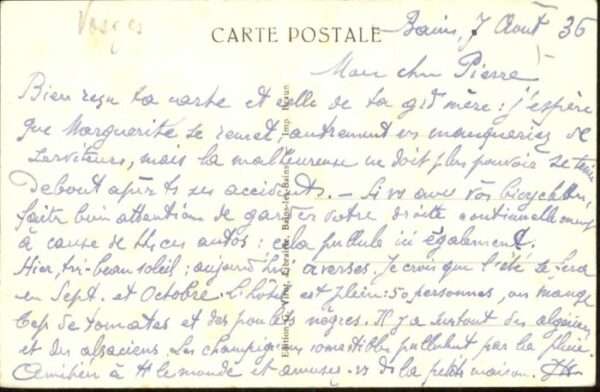 Vosges
CARTE POSTALE
Bains, 7 Août 36
Mon cher Pierre
Bien reçu ta carte et celle de ta gd mère : j'espère
que Marguerite se remet, autrement vs manqueriez de
serviteurs, mais la malheureuse ne doit plus pouvoir se tenir
debout après ses accidents. – Si vs avez vos bicyclettes,
faites bien attention de garder votre droite continuellement
à cause de ttes ces autos : cela pullule ici également.
Hier, tr. beau soleil : aujourd'hui averses. Je crois que l'été se fera
en Sept. et Octobre. L'hôtel est plein : 50 personnes, on mange
bcp de tomates et des poulets nègres. Il y a surtout des algériens
et des alsaciens. Les champignons comestibles pullulent par la pluie.
Amitiés à tt le monde et amusez-vs ds la petite maison.
Edition de Vitel, Librairie, Bains-les-Bains. - Imp. Braun